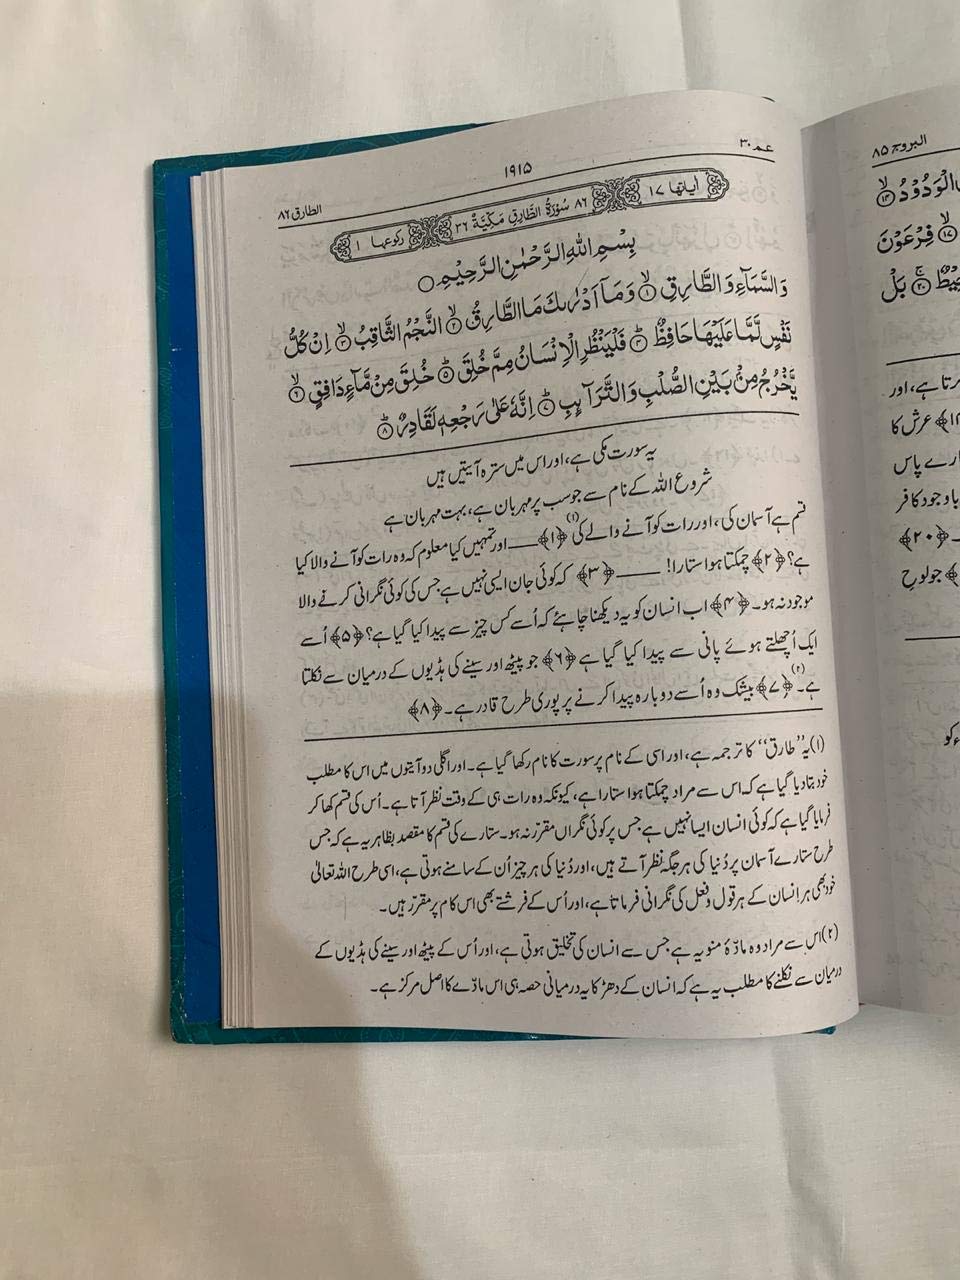 عم ۳۰
۱۹۱۵
الطارق ۸۶
اٰیاتها ۱۷
۸۶ سُوْرَةُ الطَّارِقِ مَكِّیَّةٌ ۳۶
رکوعہا ۱
بِسْمِ اللهِ الرَّحْمٰنِ الرَّحِیْمِ
وَالسَّمَآءِ وَالطَّارِقِ ۙ﴿۱﴾ وَمَاۤ اَدْرٰىكَ مَا الطَّارِقُ ۙ﴿۲﴾ النَّجْمُ الثَّاقِبُ ۙ﴿۳﴾ اِنْ كُلُّ
نَفْسٍ لَّمَّا عَلَیْهَا حَافِظٌ ؕ﴿۴﴾ فَلْیَنْظُرِ الْاِنْسَانُ مِمَّ خُلِقَ ؕ﴿۵﴾ خُلِقَ مِنْ مَّآءٍ دَافِقٍ ۙ﴿۶﴾
یَّخْرُجُ مِنْۢ بَیْنِ الصُّلْبِ وَالتَّرَآئِبِ ؕ﴿۷﴾ اِنَّهٗ عَلٰی رَجْعِهٖ لَقَادِرٌ ؕ﴿۸﴾
یہ سورت مکی ہے، اور اس میں سترہ آیتیں ہیں
شروع اللہ کے نام سے جو سب پر مہربان ہے، بہت مہربان ہے
قسم ہے آسمان کی، اور رات کو آنے والے کی (۱) ﴿۱﴾ ــــ اور تمہیں کیا معلوم کہ وہ رات کو آنے والا کیا
ہے؟ ﴿۲﴾ چمکتا ہوا ستارا! ــــــ ﴿۳﴾ کہ کوئی جان ایسی نہیں ہے جس کی کوئی نگرانی کرنے والا
موجود نہ ہو۔ ﴿۴﴾ اب انسان کو یہ دیکھنا چاہئے کہ اُسے کس چیز سے پیدا کیا گیا ہے؟ ﴿۵﴾ اُسے
ایک اُچھلتے ہوئے پانی سے پیدا کیا گیا ہے ﴿۶﴾ جو پیٹھ اور سینے کی ہڈیوں کے درمیان سے نکلتا
ہے۔ (۲) ﴿۷﴾ بیشک وہ اُسے دوبارہ پیدا کرنے پر پوری طرح قادر ہے۔ ﴿۸﴾
(۱) یہ "طارق" کا ترجمہ ہے، اور اسی کے نام پر سورت کا نام رکھا گیا ہے۔ اور اگلی دو آیتوں میں اس کا مطلب
خود بتا دیا گیا ہے کہ اس سے مراد چمکتا ہوا ستارا ہے، کیونکہ وہ رات ہی کے وقت نظر آتا ہے۔ اُس کی قسم کھا کر
فرمایا گیا ہے کہ کوئی انسان ایسا نہیں ہے جس پر کوئی نگراں مقرّر نہ ہو۔ ستارے کی قسم کا مقصد بظاہر یہ ہے کہ جس
طرح ستارے آسمان پر دُنیا کی ہر جگہ نظر آتے ہیں، اور دُنیا کی ہر چیز اُن کے سامنے ہوتی ہے، اسی طرح اللہ تعالیٰ
خود بھی ہر انسان کے ہر قول و فعل کی نگرانی فرماتا ہے، اور اُس کے فرشتے بھی اس کام پر مقرّر ہیں۔
(۲) اس سے مراد وہ مادّۂ منویہ ہے جس سے انسان کی تخلیق ہوتی ہے، اور اُس کے پیٹھ اور سینے کی ہڈیوں کے
درمیان سے نکلنے کا مطلب یہ ہے کہ انسان کے دھڑ کا یہ درمیانی حصہ ہی اس مادّے کا اصل مرکز ہے۔
البروج ۸۵
الْوَدُوْدُ ۙ﴿۱۴﴾
﴿۱۷﴾ فِرْعَوْنَ
﴿۲۰﴾ بَلْ
رتا ہے، اور
﴾ عرش کا
رے پاس
باوجود کافر
﴿۲۰﴾
﴾ جو لوحِ